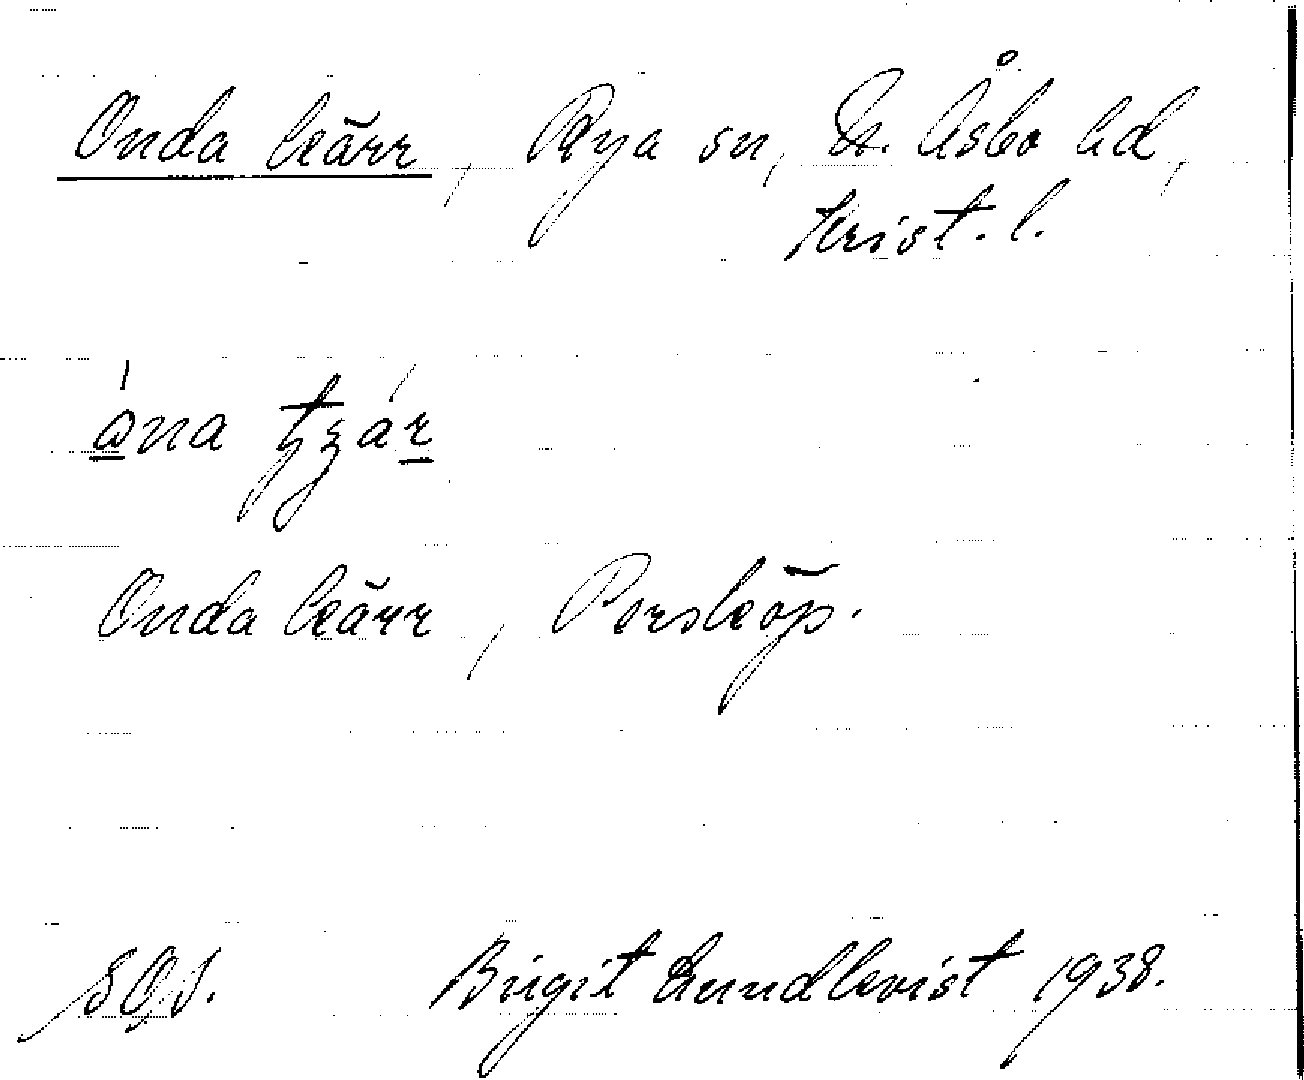 Onda kärr, Rya sn, N. Åsbo hd,
Krist. l.
Onda kärr, Porsköp.
SOI. Birgit Lundkvist 1938.